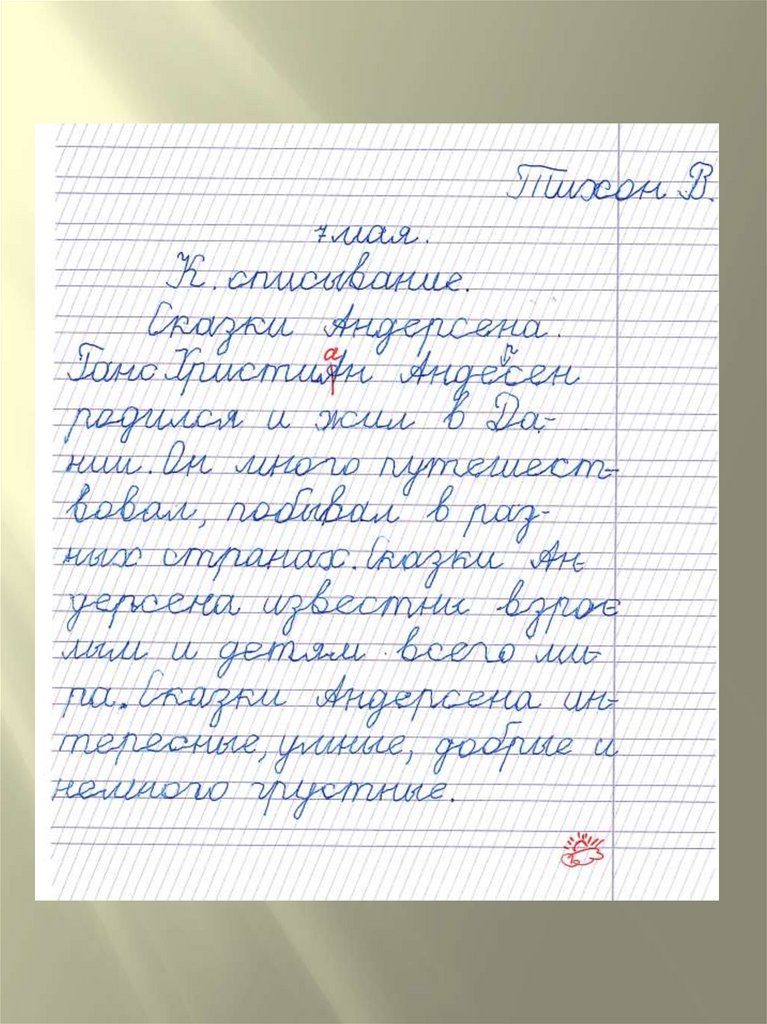 Тихон В.
7 мая.
К. списывание.
Сказки Андерсена.
Ганс Христиан Андерсен
родился и жил в Да-
нии. Он много путешест-
вовал, побывал в раз-
ных странах. Сказки Ан-
дерсена известны взрос
лым и детям всего ми-
ра. Сказки Андерсена ин-
тересные, умные, добрые и
немного грустные.